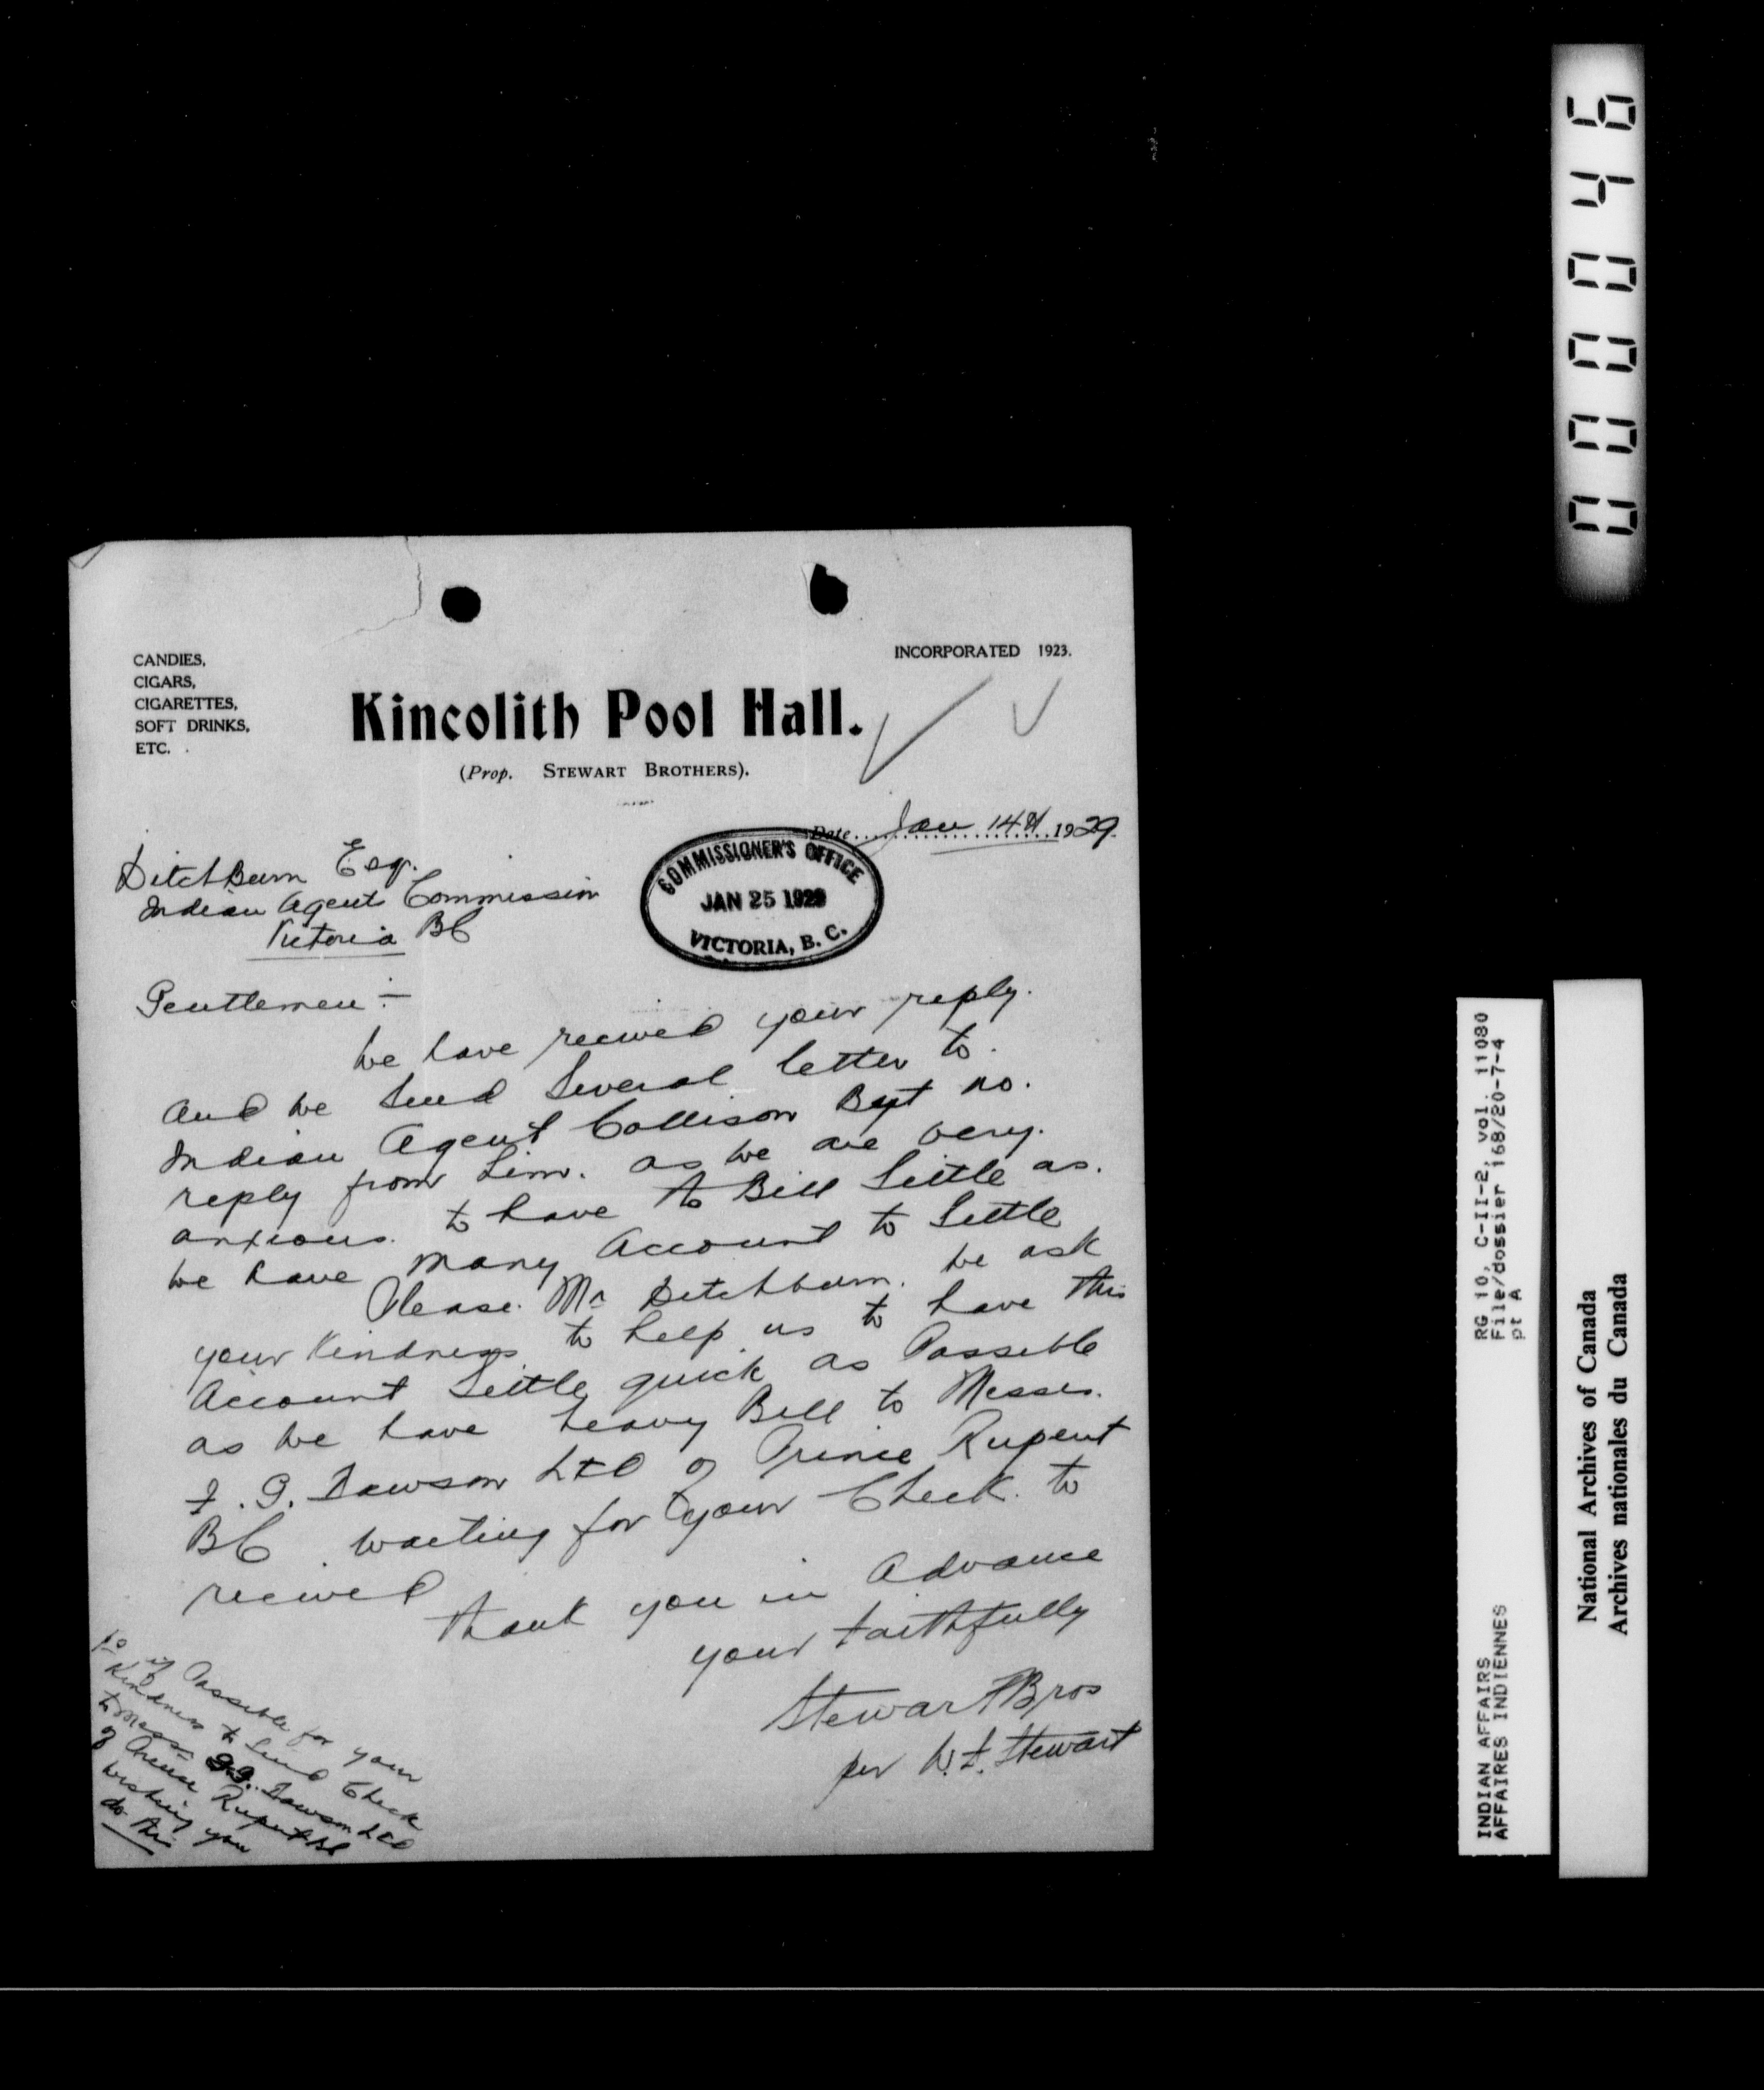 000046
CANDIES,
CIGARS,
CIGARETTES,
SOFT DRINKS,
ETC.
INCORPORATED 1923.
Kincolith Pool Hall.
(Prop. STEWART BROTHERS).
Date Jan 14th 1929.
COMMISSIONER'S OFFICE
JAN 25 1929
VICTORIA, B. C.
Ditchburn Esq.
Indian Agent Commission
Victoria BC
Gentlemen :-
We have recived your reply.
and we send several letter to.
Indian Agent Collison But no.
reply from him. as we are very.
anxious. to have to Bill Settle as.
we have many Account to Settle
Please. Mr Ditchburn. we ask
your Kindness to help us to have this
Account Settle quick as Possible
as we have heavy Bill to Messrs.
J. G. Dawson Ltd of Prince Rupert
BC. waiting for your Check. to
recived
Thank you in Advance
your faithfully
Stewart Bros
per W. F. Stewart
if Possible for your
Kindness to Send Check
to Messrs J.G. Dawson Ltd
of Prince Rupert BC
wishing you
do this
RG 10, C-II-2, vol. 11080
File/dossier 168/20-7-4
pt A
INDIAN AFFAIRS
AFFAIRES INDIENNES
National Archives of Canada
Archives nationales du Canada